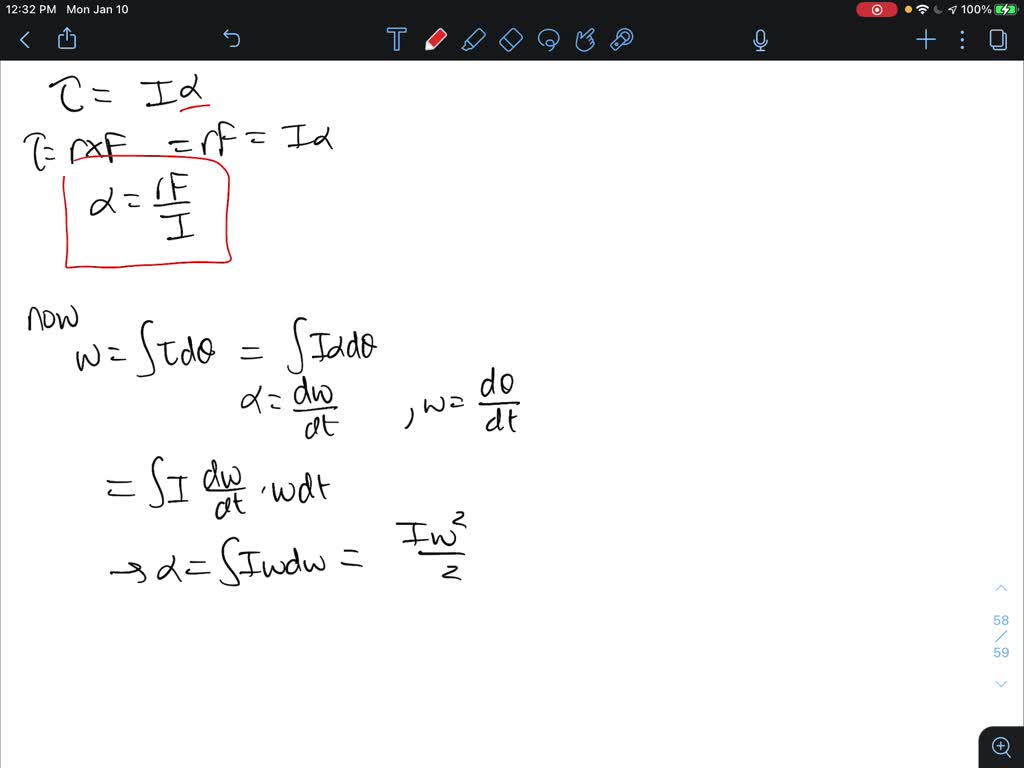 12:32 PM Mon Jan 10 100%
T
τ = Iα
τ = r×F = rF = Iα
α = rF/I
now
w = ∫τdθ = ∫Iαdθ
α = dw/dt , w = dθ/dt
= ∫I dw/dt · wdt
→ α = ∫Iwdw = Iw²/2
58
/
59